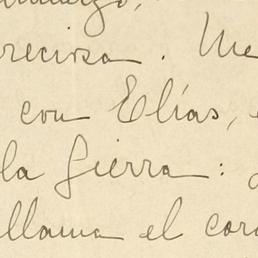 reciosa. Me
con Elías,
la Sierra:
llama el cor